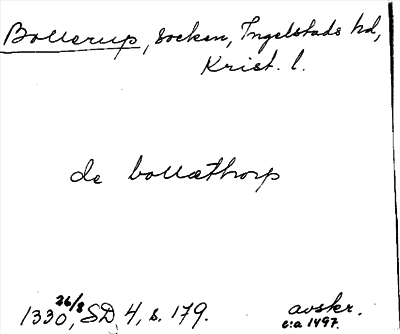 Bollerup, socken, Ingelstads hd,
Krist. l.
de bollæthorp
1330 26/8, SD 4, s. 179.
avskr.
c:a 1497.